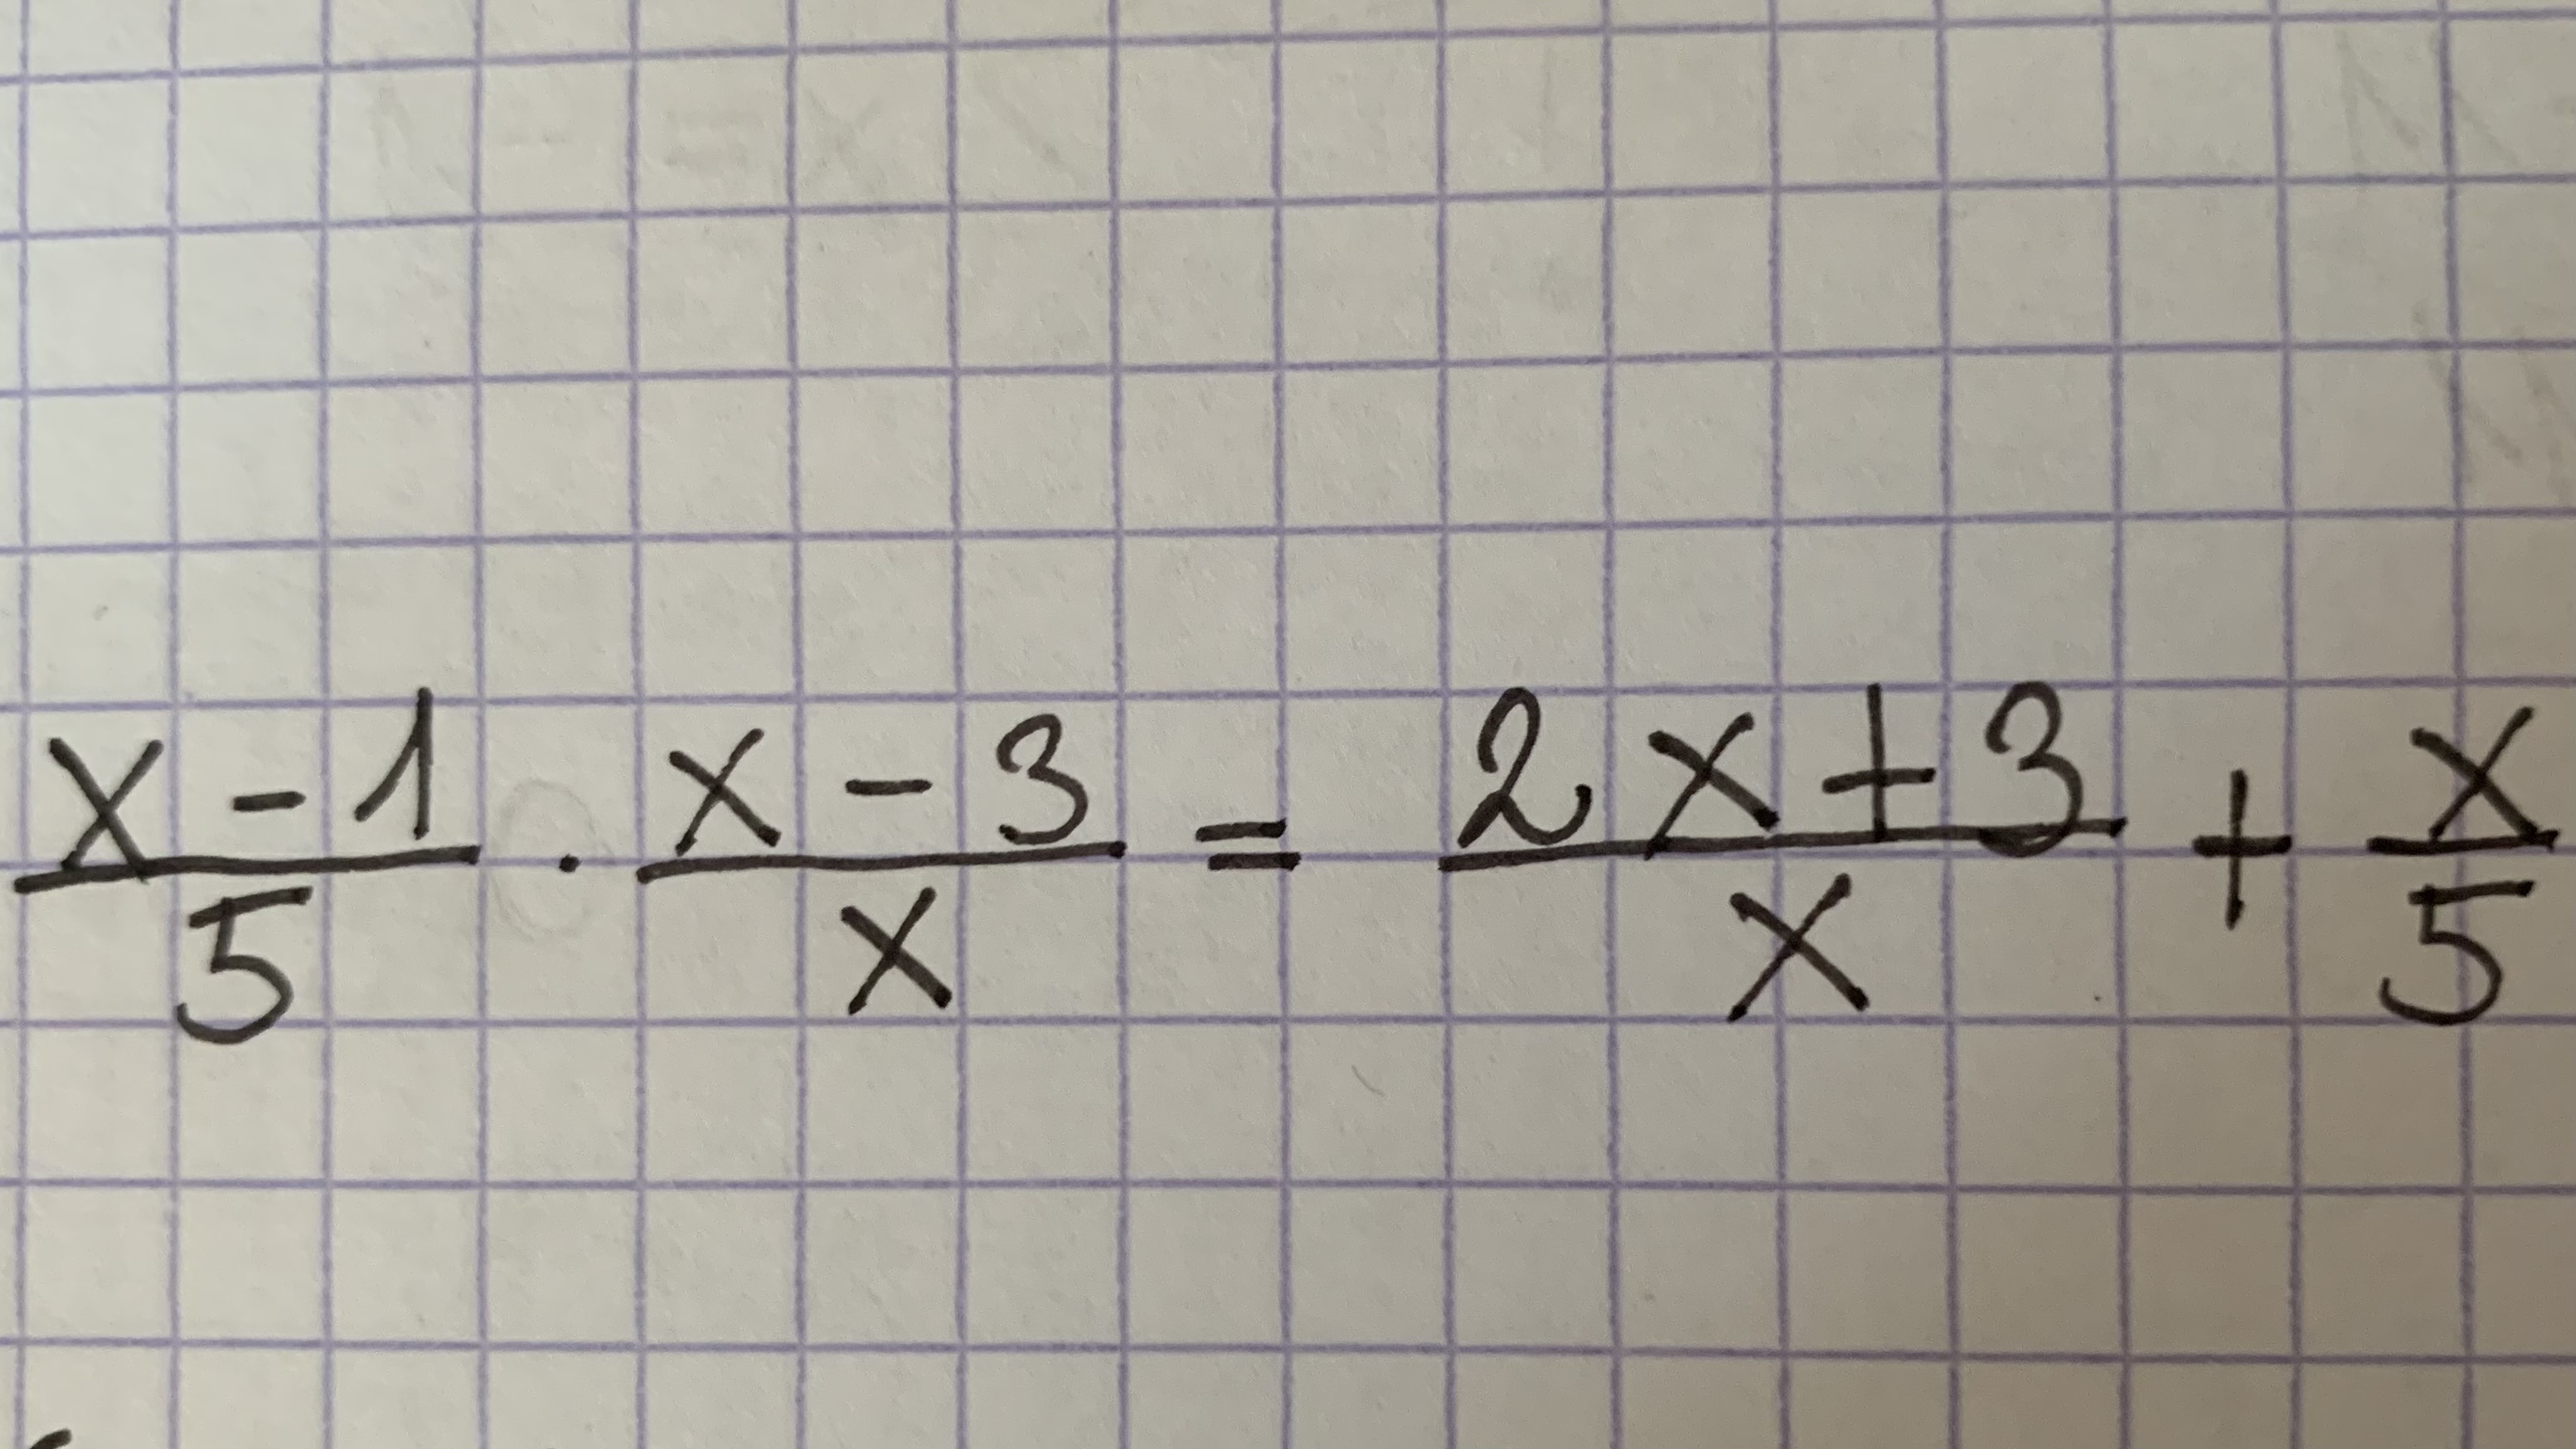 (x-1)/5 · (x-3)/x = (2x+3)/x + x/5